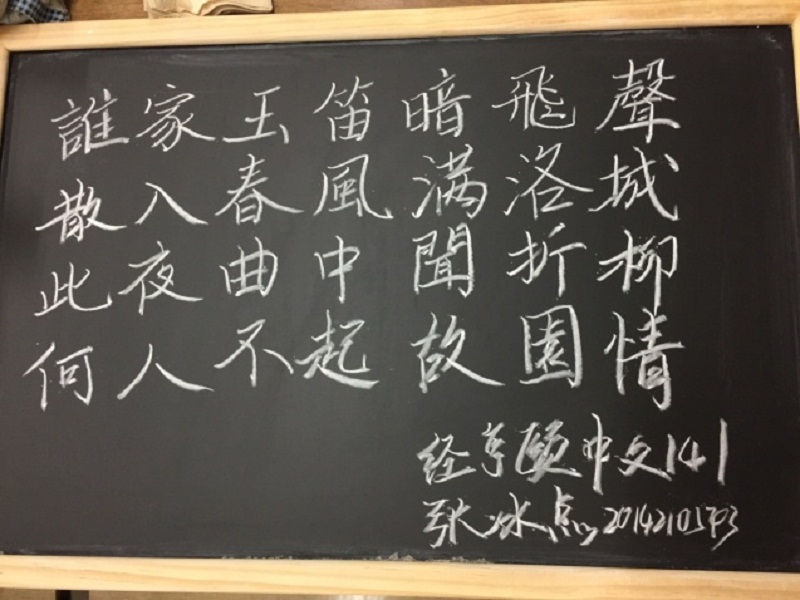 誰家玉笛暗飛聲
散入春風满洛城
此夜曲中聞折柳
何人不起故園情
经亨颐中文141
张冰点